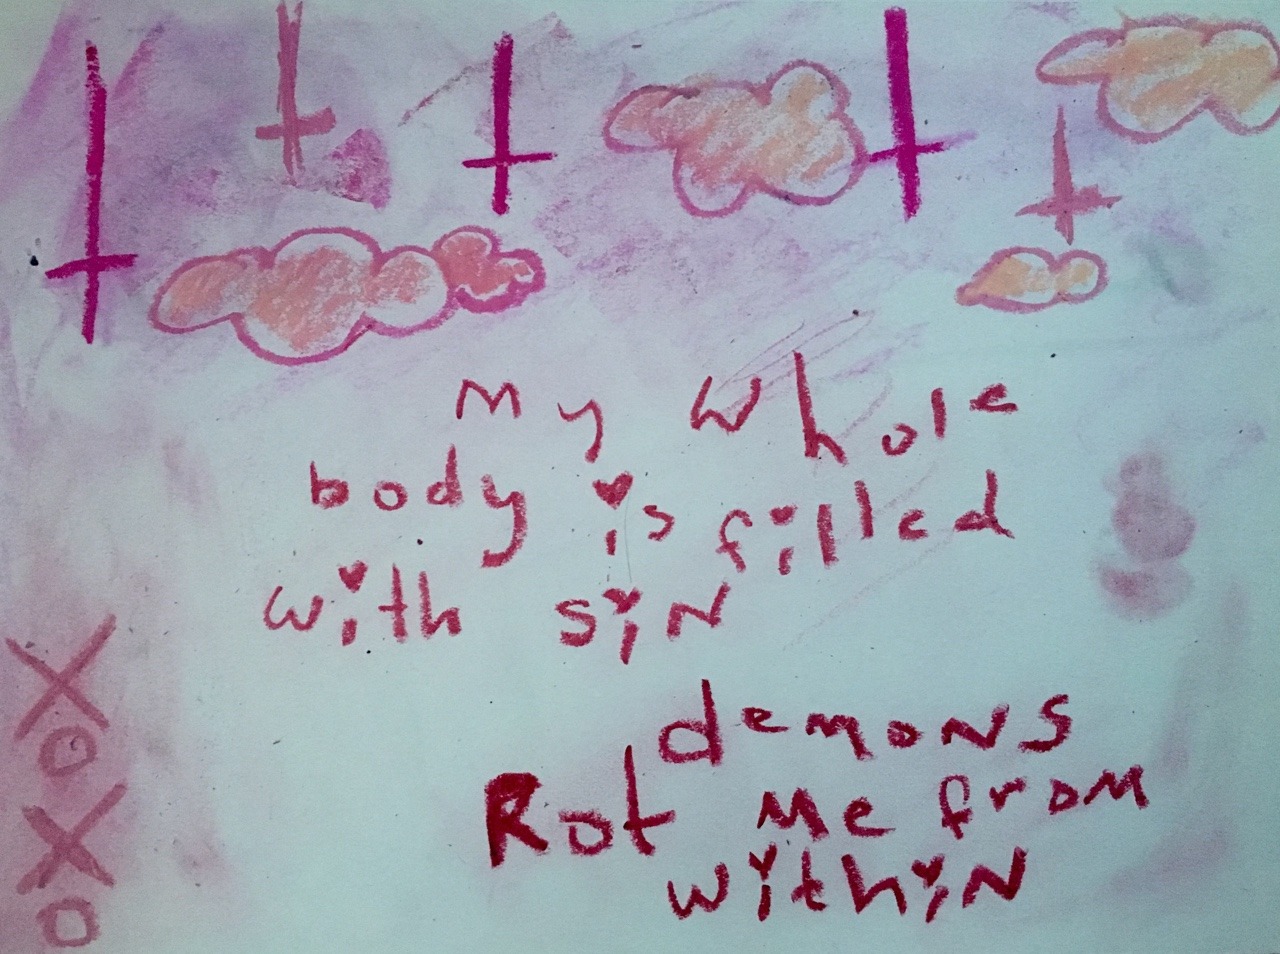 My whole
body is filled
with siN
demoNs
Rot Me from
withiN
X
O
X
O